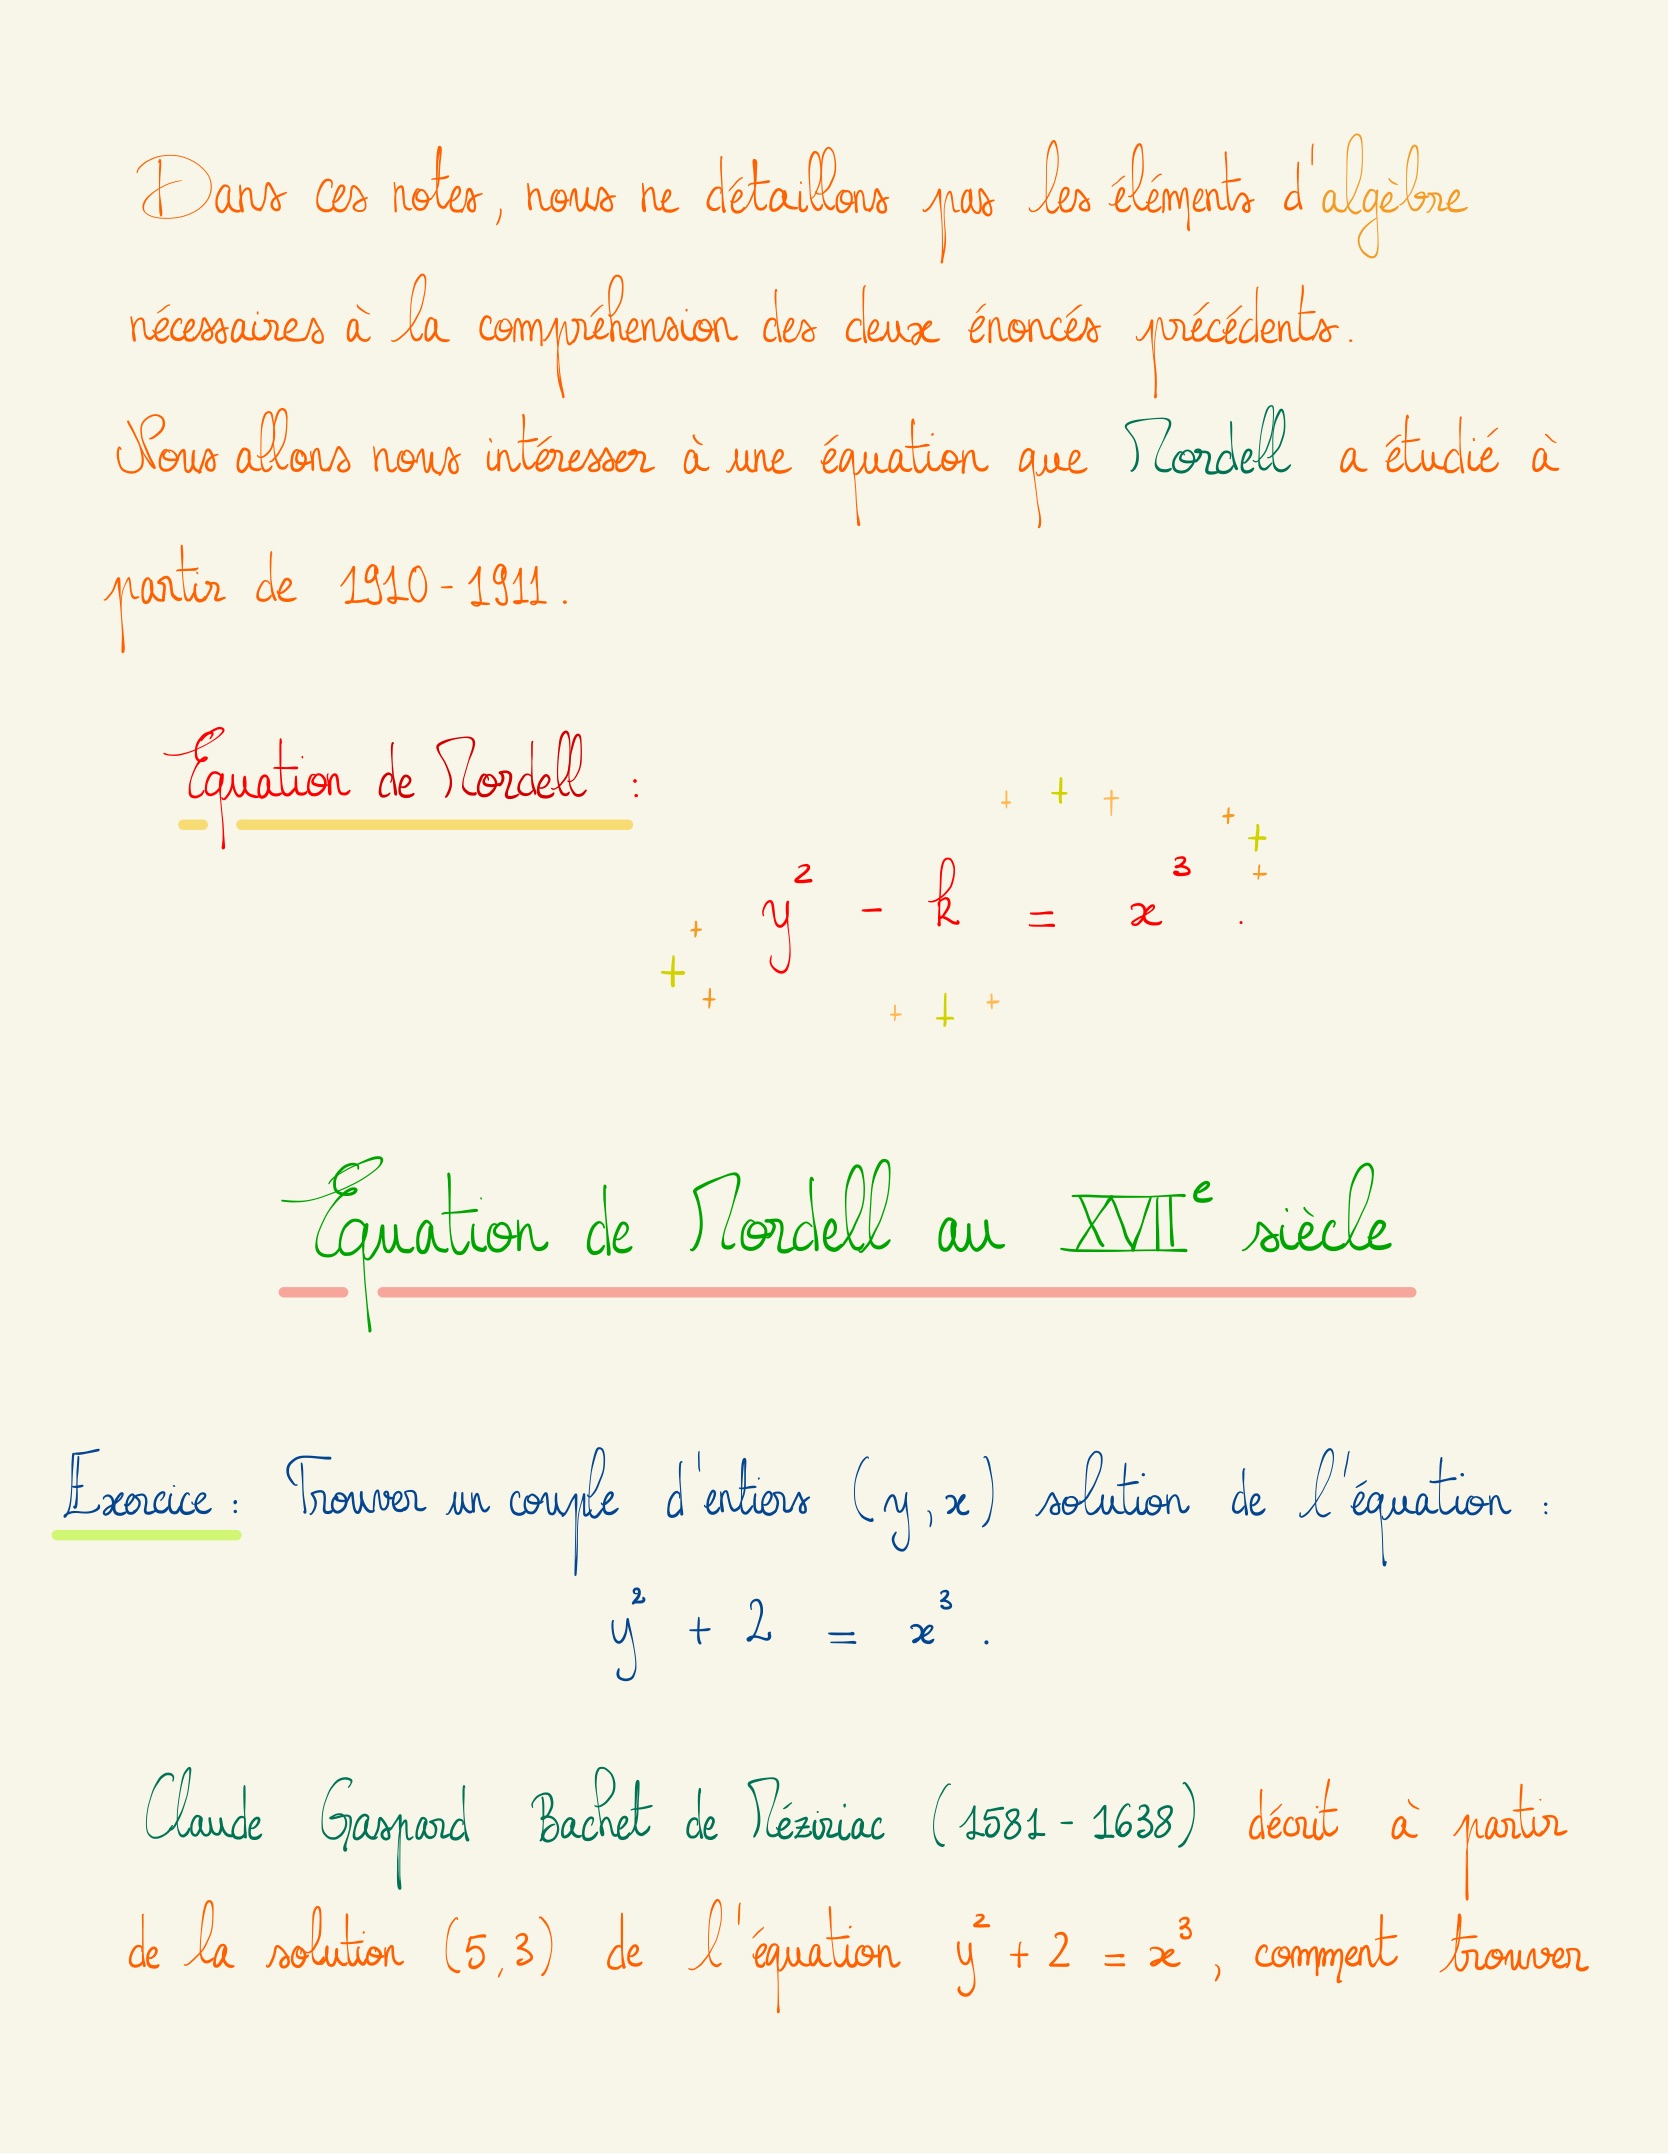 Dans ces notes, nous ne détaillons pas les éléments d'algèbre
nécessaires à la compréhension des deux énoncés précédents.
Nous allons nous intéresser à une équation que Mordell a étudié à
partir de 1910-1911.
Équation de Mordell :
y² - k = x³.
Équation de Mordell au XVIIᵉ siècle
Exercice : Trouver un couple d'entiers (y, x) solution de l'équation :
y² + 2 = x³.
Claude Gaspard Bachet de Méziriac (1581 - 1638) décrit à partir
de la solution (5, 3) de l'équation y² + 2 = x³, comment trouver